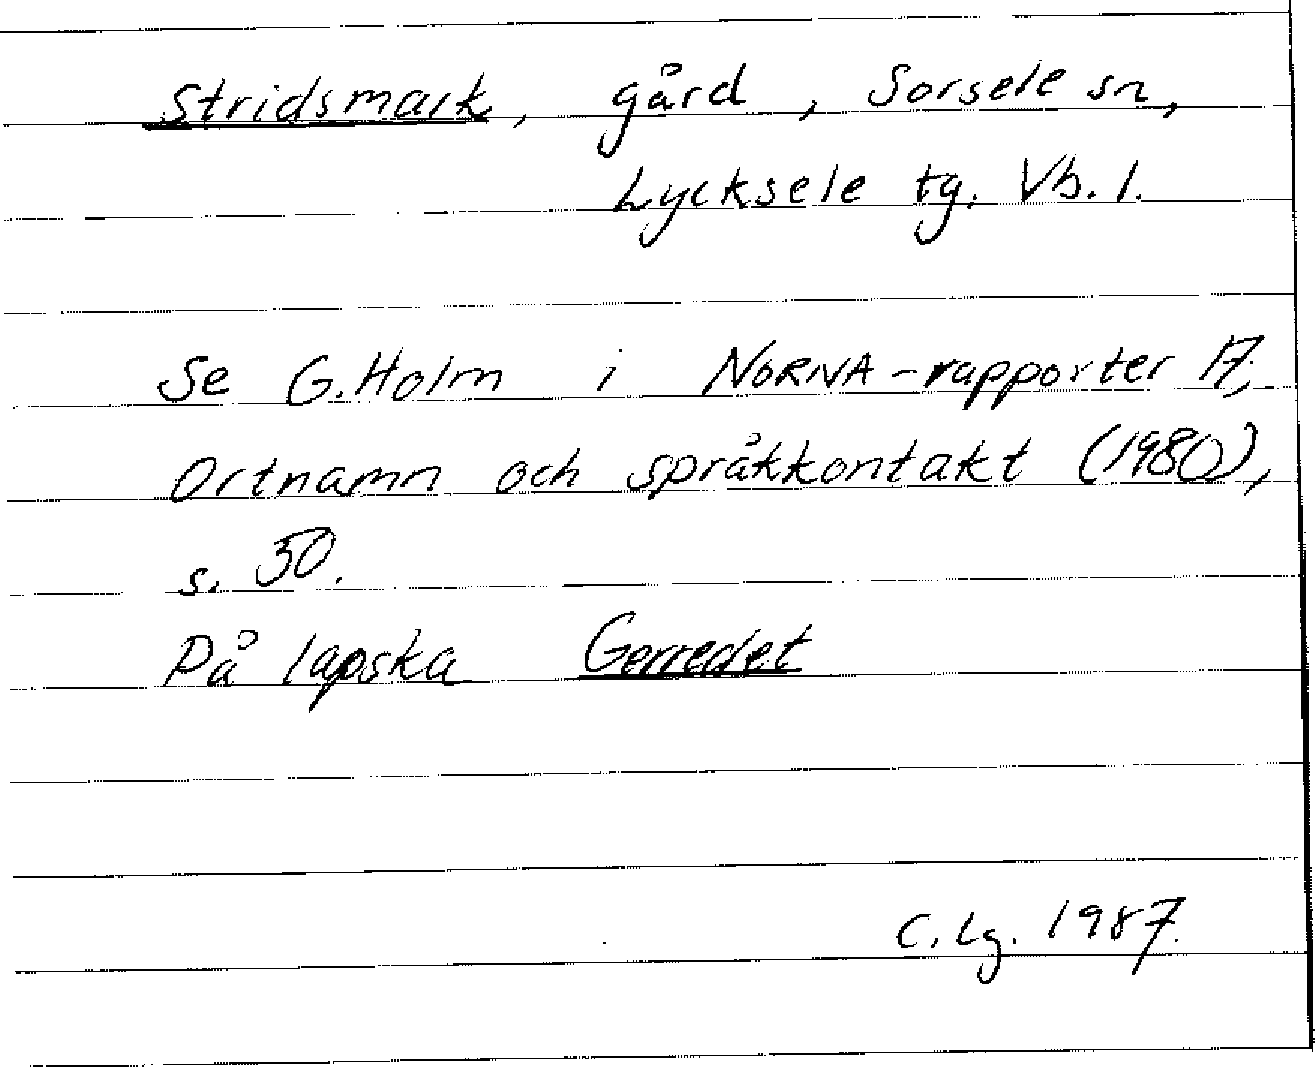 Stridsmark, gård, Sorsele sn,
Lycksele tg. Vb. l.
Se G. Holm i NORNA-rapporter 17,
Ortnamn och språkkontakt (1980),
s. 30.
På lapska
C. Lg. 1987.